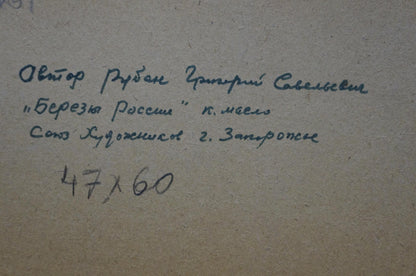 Автор Рубан Григорий Савельевич
„Березы России" к. масло
Союз Художников г. Запорожье
47х60